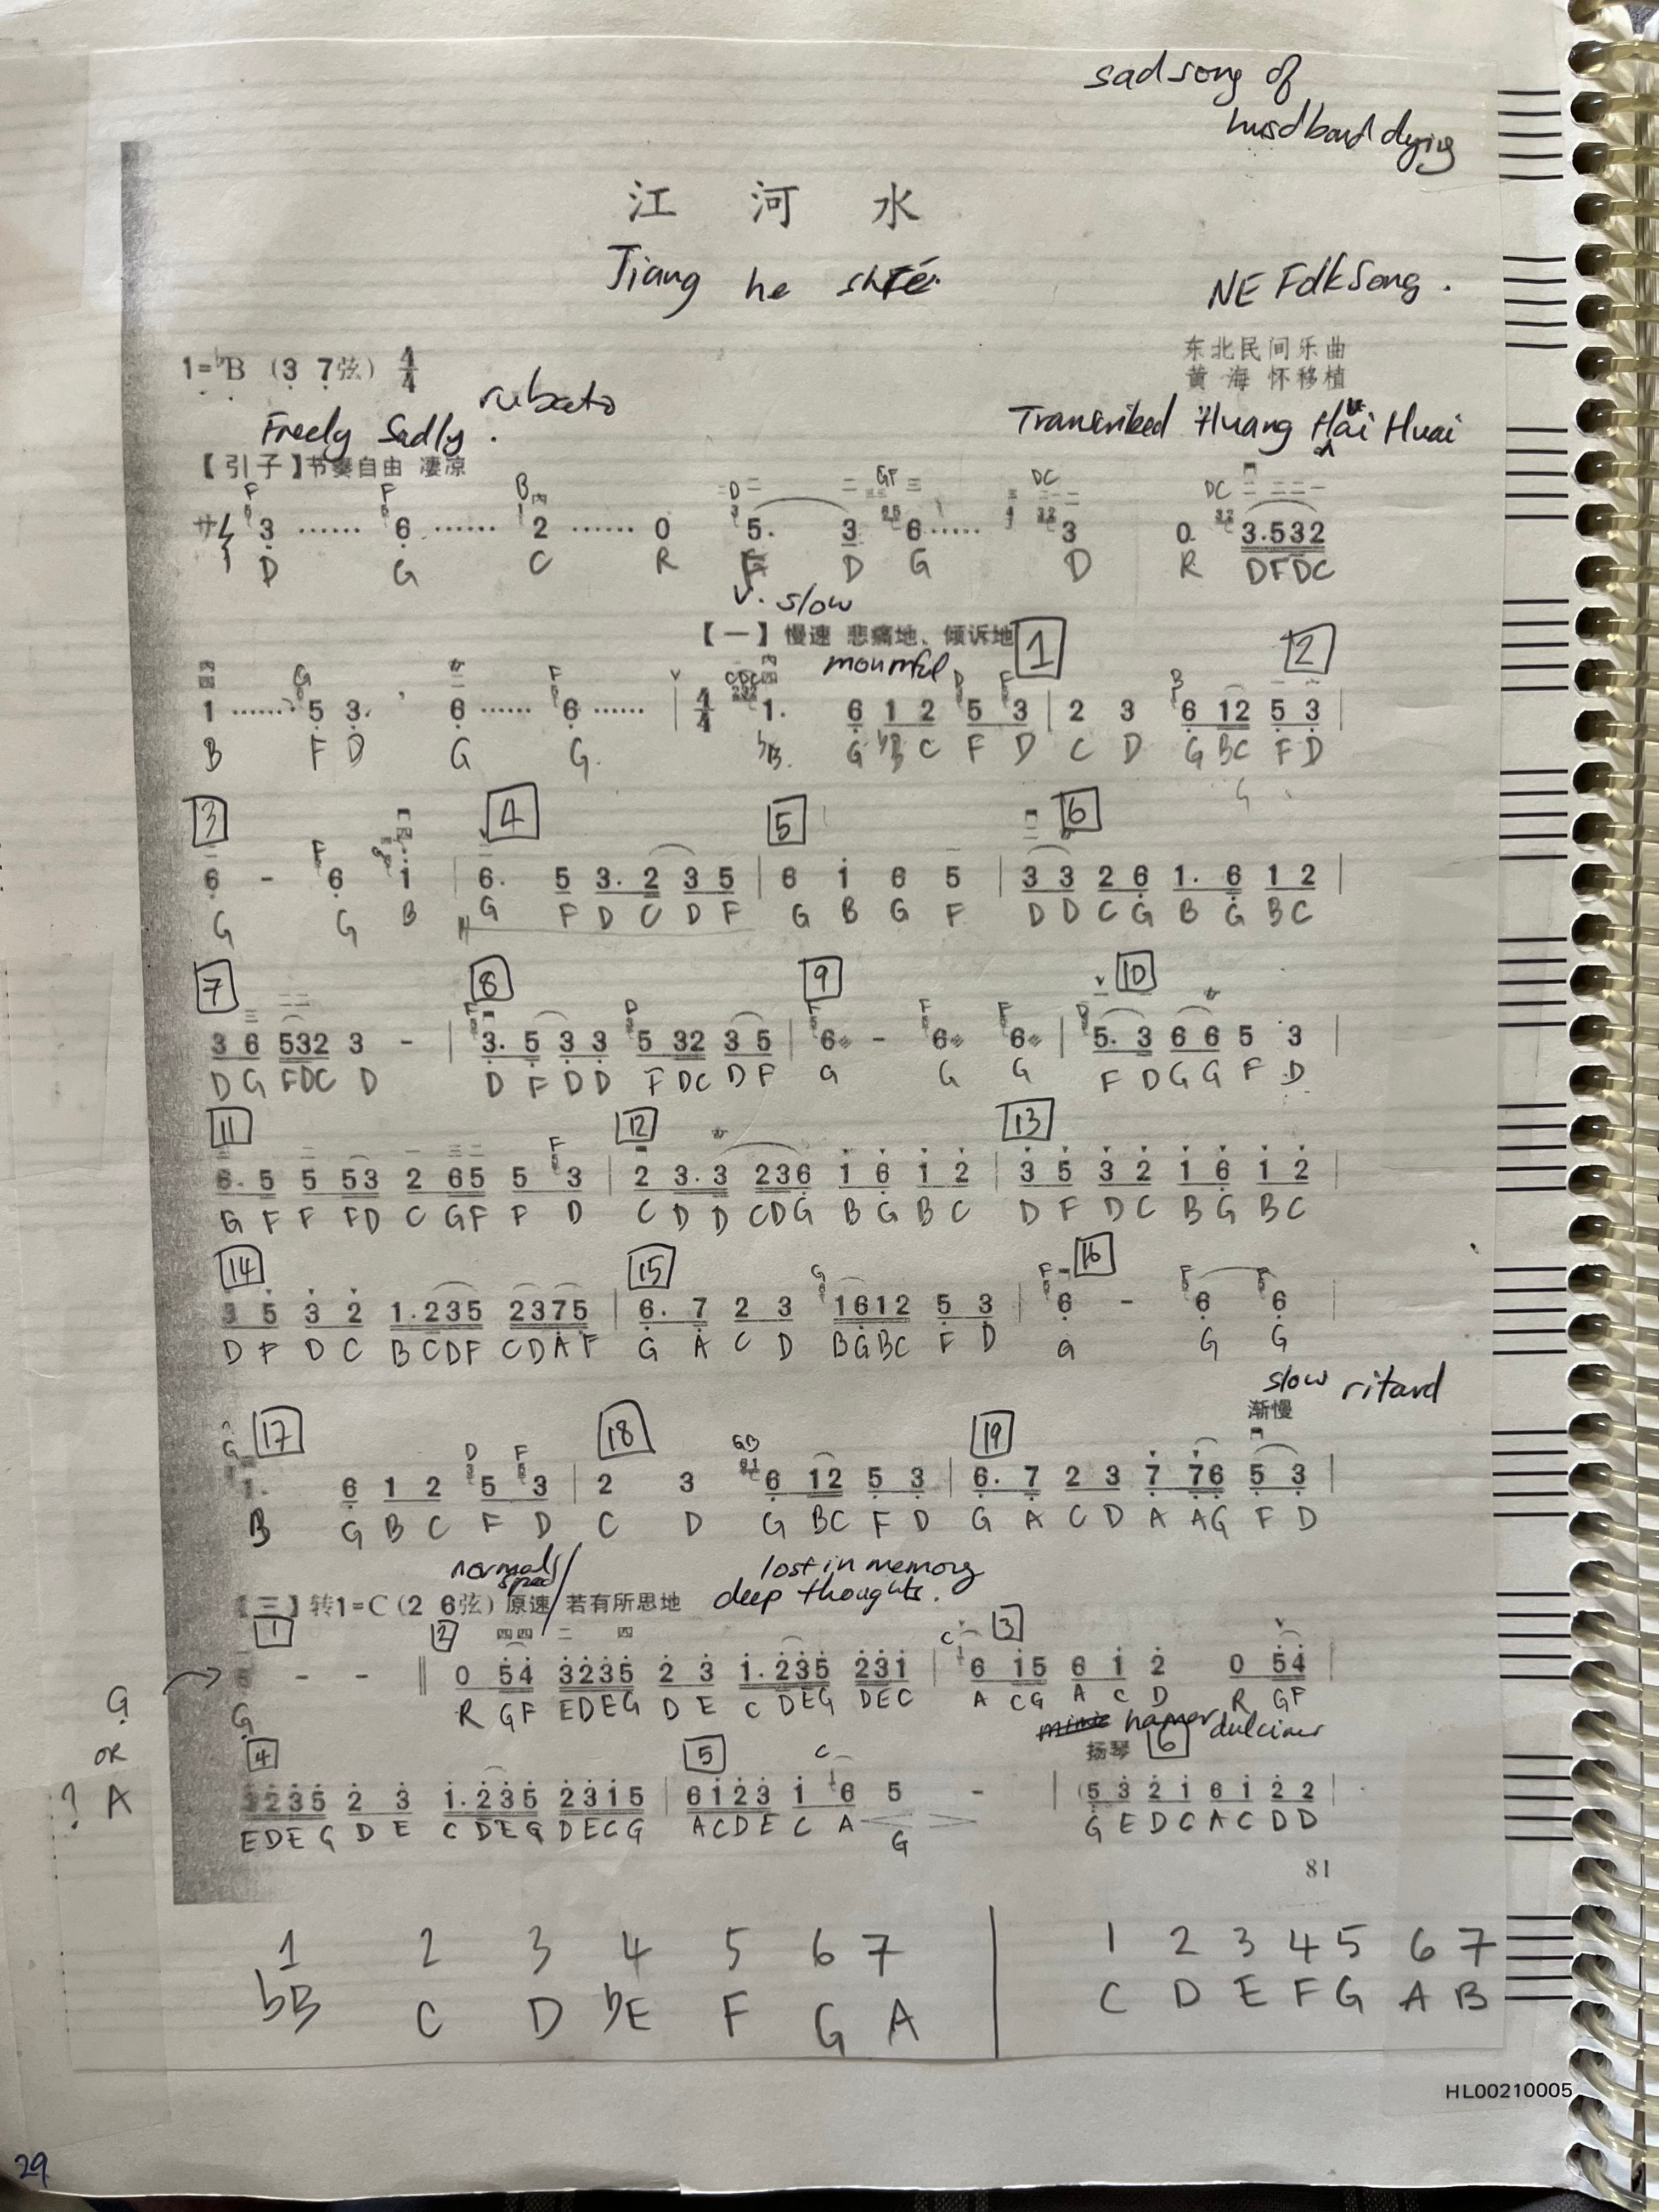 sad song of
husdband dying
江 河 水
Jiang he
NE Folk Song .
1=♭B (3 7弦) 4/4
东北民间乐曲
黄 海 怀移植
Freely Sadly . rubato
Transcribed Huang Hai Huai
【引子】节奏自由 凄凉
F F B D GF DC DC
サ 3 …… 6 …… 2 …… 0 5. 3 6 …… 3 0. 3.532
D G C R F D G D R DFDC
V. slow
【一】慢速 悲痛地、倾诉地 1 2
mournful
G F V CDC D F B
1 …… 5 3. 6 …… 6 …… | 4/4 1. 6 1 2 5 3 | 2 3 6 12 5 3 |
B F D G G. ♭B. G ♭B C F D C D G BC F D
3 4 5 6
F
6 - 6 1 | 6. 5 3. 2 3 5 | 6 1 6 5 | 3 3 2 6 1. 6 1 2 |
G G B G F D C D F G B G F D D C G B G B C
7 8 9 10
F D F F F D
3 6 532 3 - | 3. 5 3 3 5 32 3 5 | 6 - 6 6 | 5. 3 6 6 5 3 |
D G FDC D D F D D F DC D F G G G F D G G F D
11 12 13
F
6. 5 5 53 2 65 5 3 | 2 3. 3 236 1 6 1 2 | 3 5 3 2 1 6 1 2 |
G F F FD C GF F D C D D CDG B G B C D F D C B G B C
14 15 16
G F F F
3 5 3 2 1.235 2375 | 6. 7 2 3 1612 5 3 | 6 - 6 6 |
D F D C B CDF CDAF G A C D BGBC F D G G G
slow ritard
渐慢
17 18 19
G D F GB
1. 6 1 2 5 3 | 2 3 6 12 5 3 | 6. 7 2 3 7 76 5 3 |
B G B C F D C D G BC F D G A C D A AG F D
normal speed lost in memory
【三】转1=C (2 6弦) 原速 若有所思地 deep thoughts.
1 2 3
C
- - ‖ 0 54 3235 2 3 1.235 231 | 6 15 6 1 2 0 54 |
G R GF EDEG D E C DEG DEC A CG A C D R GF
G
OR
? A
hamer dulcimer
4 5 扬琴 6
C
3235 2 3 1.235 2315 | 6123 1 6 5 - | (5 3 2 1 6 1 2 2 |
EDEG D E C DEG DECG ACDE C A G G E D C A C D D
81
1 2 3 4 5 6 7 | 1 2 3 4 5 6 7
♭B C D ♭E F G A | C D E F G A B
HL00210005
29